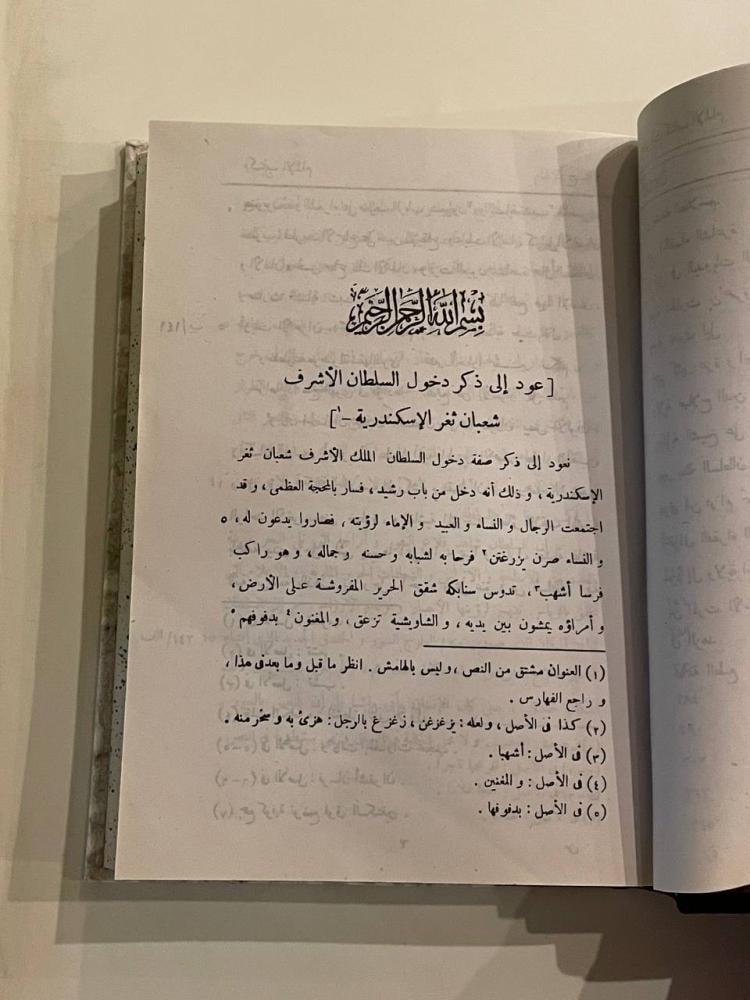 بسم الله الرحمن الرحيم
[ عود إلى ذكر دخول السلطان الأشرف
شعبان ثغر الإسكندرية –١ ]
نعود إلى ذكر صفة دخول السلطان الملك الأشرف شعبان ثغر
الإسكندرية ، و ذلك أنه دخل من باب رشيد ، فسار بالمحجة العظمى ، و قد
اجتمعت الرجال و النساء و العبيد و الإماء لرؤيته ، فصاروا يدعون له ، ٥
و النساء صرن يزرغتن٢ فرحا به لشبابه و حسنه و جماله ، و هو راكب
فرسا أشهب٣ ، تدوس سنابكه شقق الحرير المفروشة على الأرض ،
و أمراؤه يمشون بين يديه ، و الشاويشية تزعق ، و المغنون٤ بدفوفهم٥
(١) العنوان مشتق من النص ، و ليس بالهامش . انظر ما قبل وما بعد فى هذا ،
و راجع الفهارس .
(٢) كذا فى الأصل ، و لعله : يزغزغن ، زغزغ بالرجل : هزئ به و سخر منه .
(٣) فى الأصل : أشهبا .
(٤) فى الأصل : و المغنين .
(٥) فى الأصل : بدفوفها .